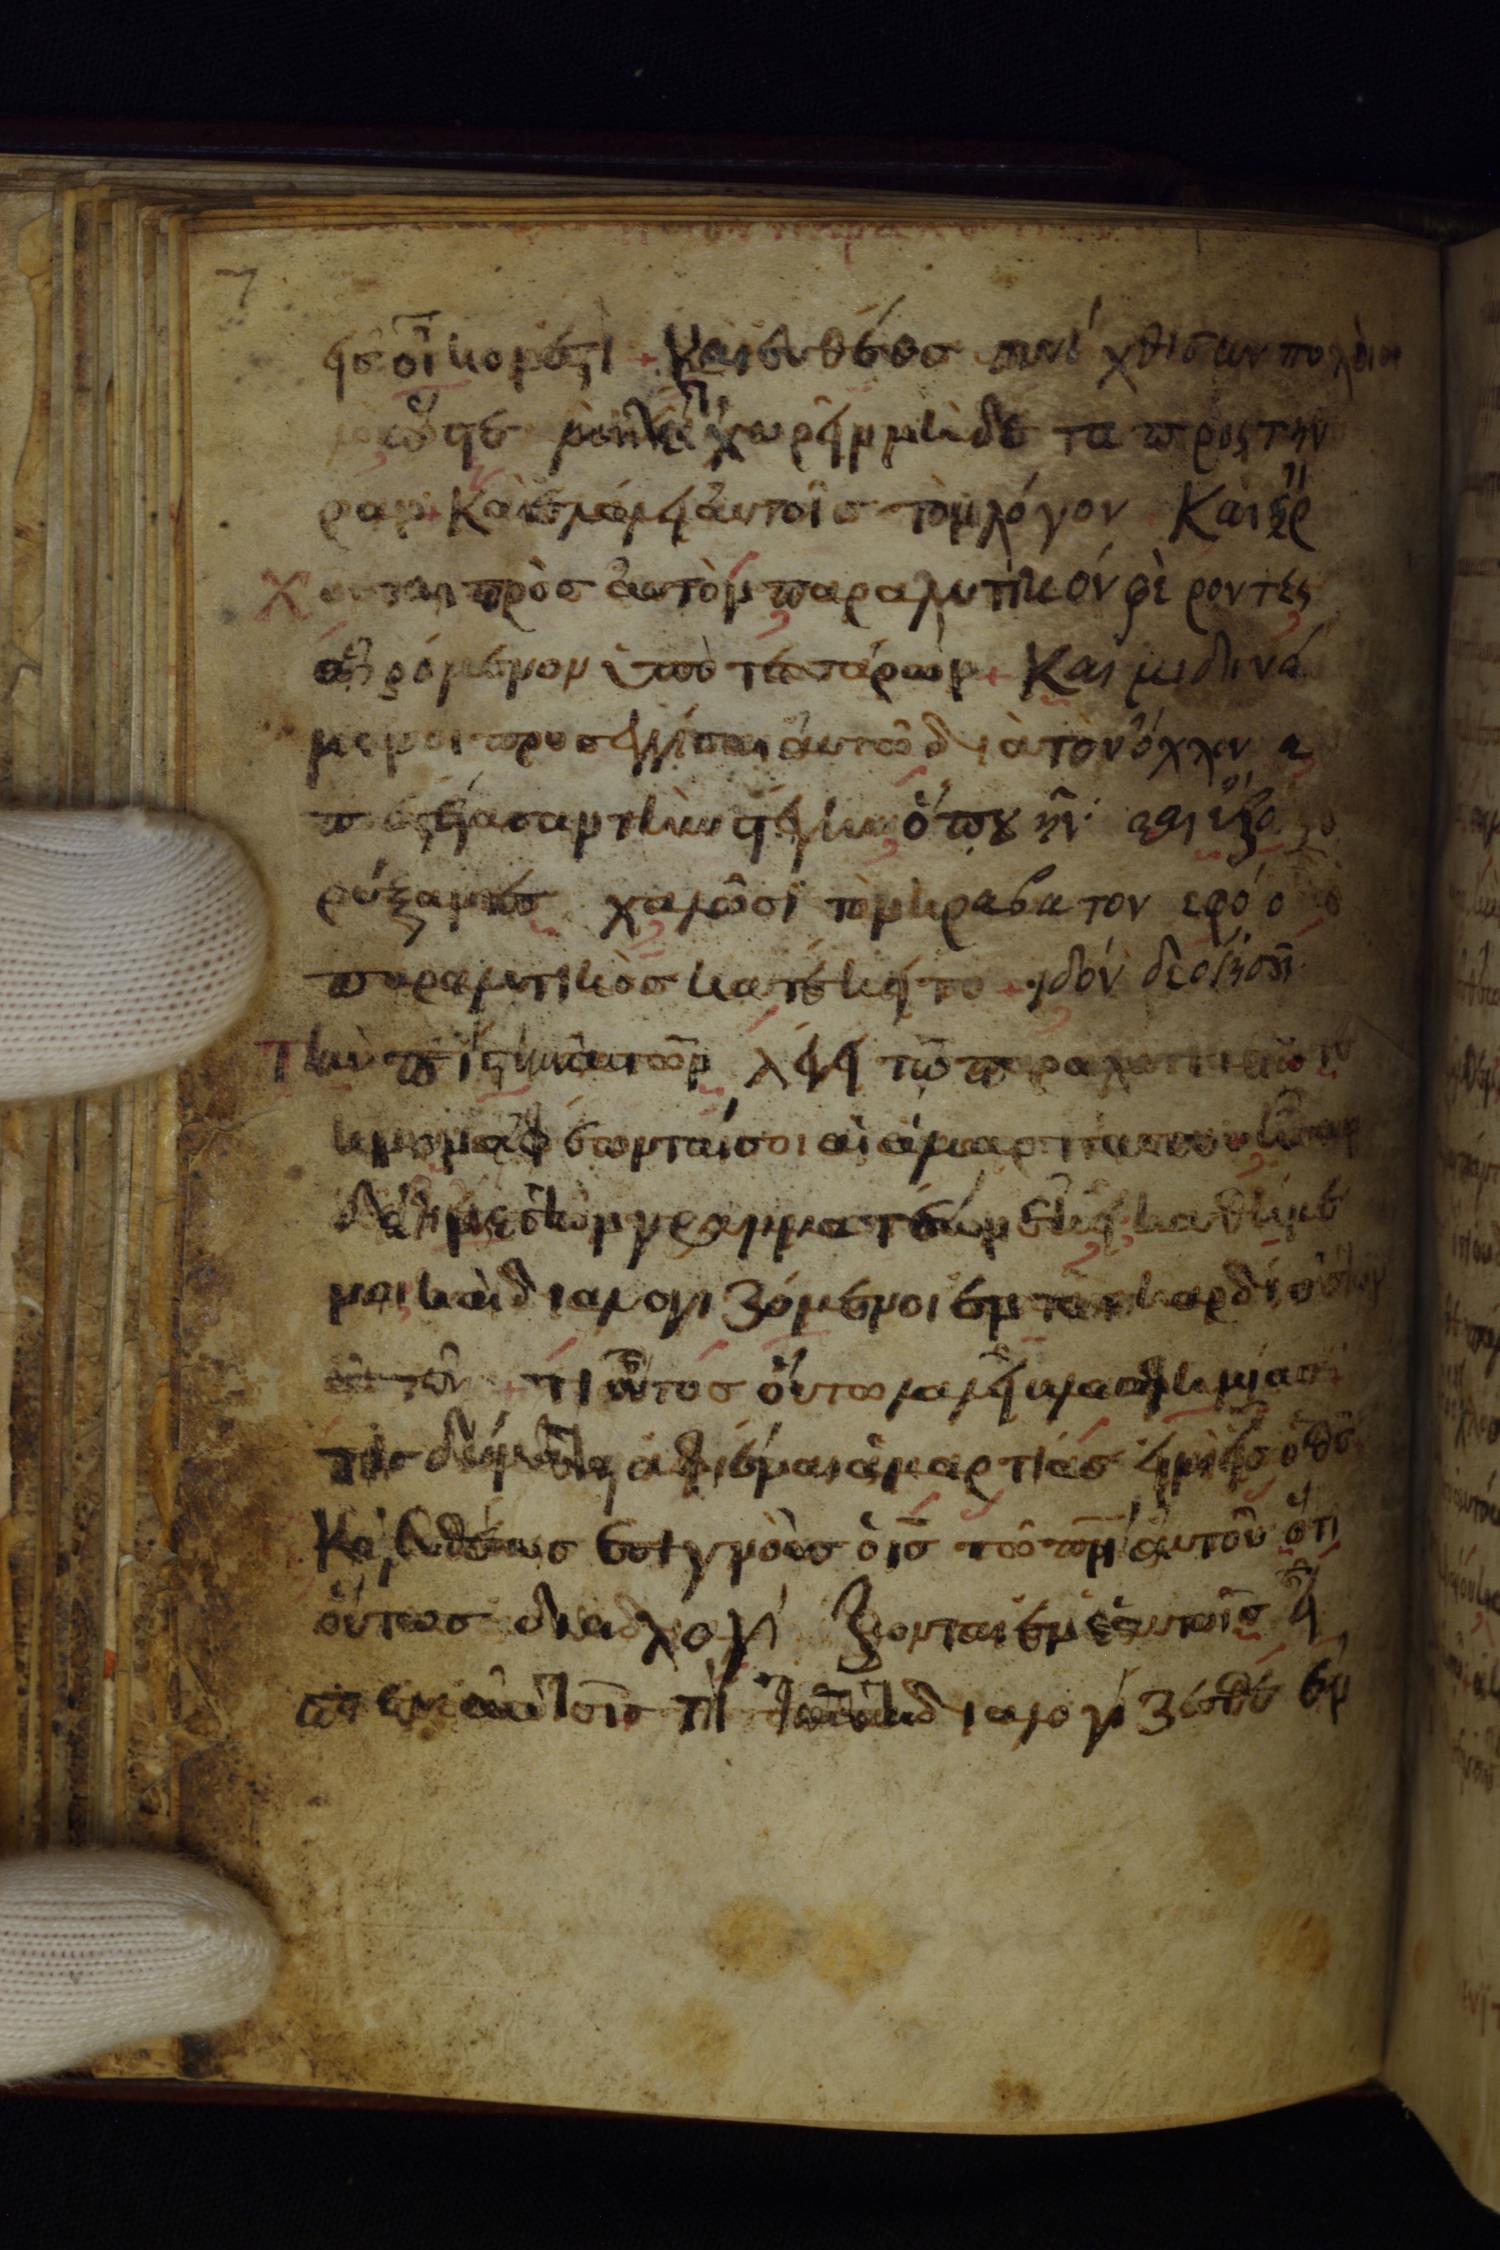 εἰς οἶκον ἐστι + Και ἐυθέος συνί χθισαν πολλοι
ὥστε μηκέτι χωρεῖν μηδὲ τα προς την
ραν + Καὶ ἐλάλει ἀυτοῖς τὸν λόγον Και ἔρ
χονται πρὸς ἀυτὸν παραλυτικόν φὲροντες
αἰρόμενον ὑπὸ τεσσάρων + Και μι δινά
μενοι προσεγγίσαι ἀυτῶ διὰ τὸν όχλον α
πεστέγασαν τὴν στέγην ὅπου ἦν· και εξο
ρύξαντες χαλῶσι τὸν κραβατον εφό ο
παραλυτικὸς κατέκειτο + ιδόν δε ὁ ις
τὴν πίστιν αυτῶν λέγει τῶ παραλυτικῶ
τέκνον ἀφέωνταί σοι αἱ ἁμαρτίαι σου ἦσαν
δέ τινες τῶν γραμματέων ἐκεῖ καθήμε
νοι καὶ διαλογιζόμενοι ἐν ταις καρδίαις
αὐτῶν + τί οὗτος ὅυτω λαλεῖ βλασφημίας
τίς δύναται ἀφιέναι ἁμαρτίας εἰ μὴ εἷς ὁ θς
Και ευθέως ἐπιγνοὺς ὁ ις τῶ πνι ἀυτοῦ ὅτι
ὅυτως διαλογί ζονται ἐν ἑαυτοῖς εἶ
πεν αυτοῖς τί ταῦτα διαλογίζεσθε ἐν